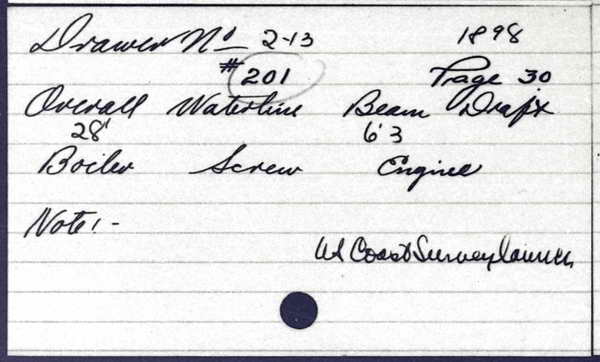 Drawer No 2-13 1898
#201 Page 30
Overall Waterline Beam Draft
28' 6'3
Boiler Screw Engine
Note:-
US Coast Survey launch